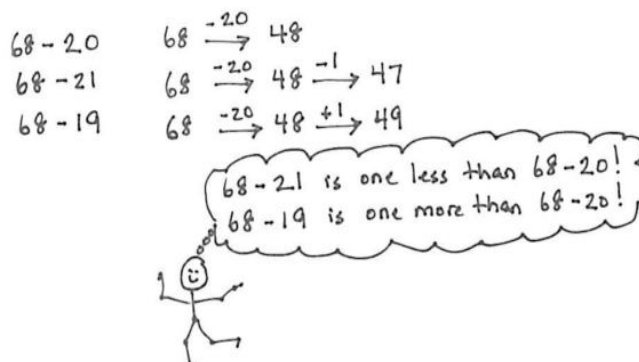 68-20 68 -20→ 48
68-21 68 -20→ 48 -1→ 47
68-19 68 -20→ 48 +1→ 49
68-21 is one less than 68-20!
68-19 is one more than 68-20!